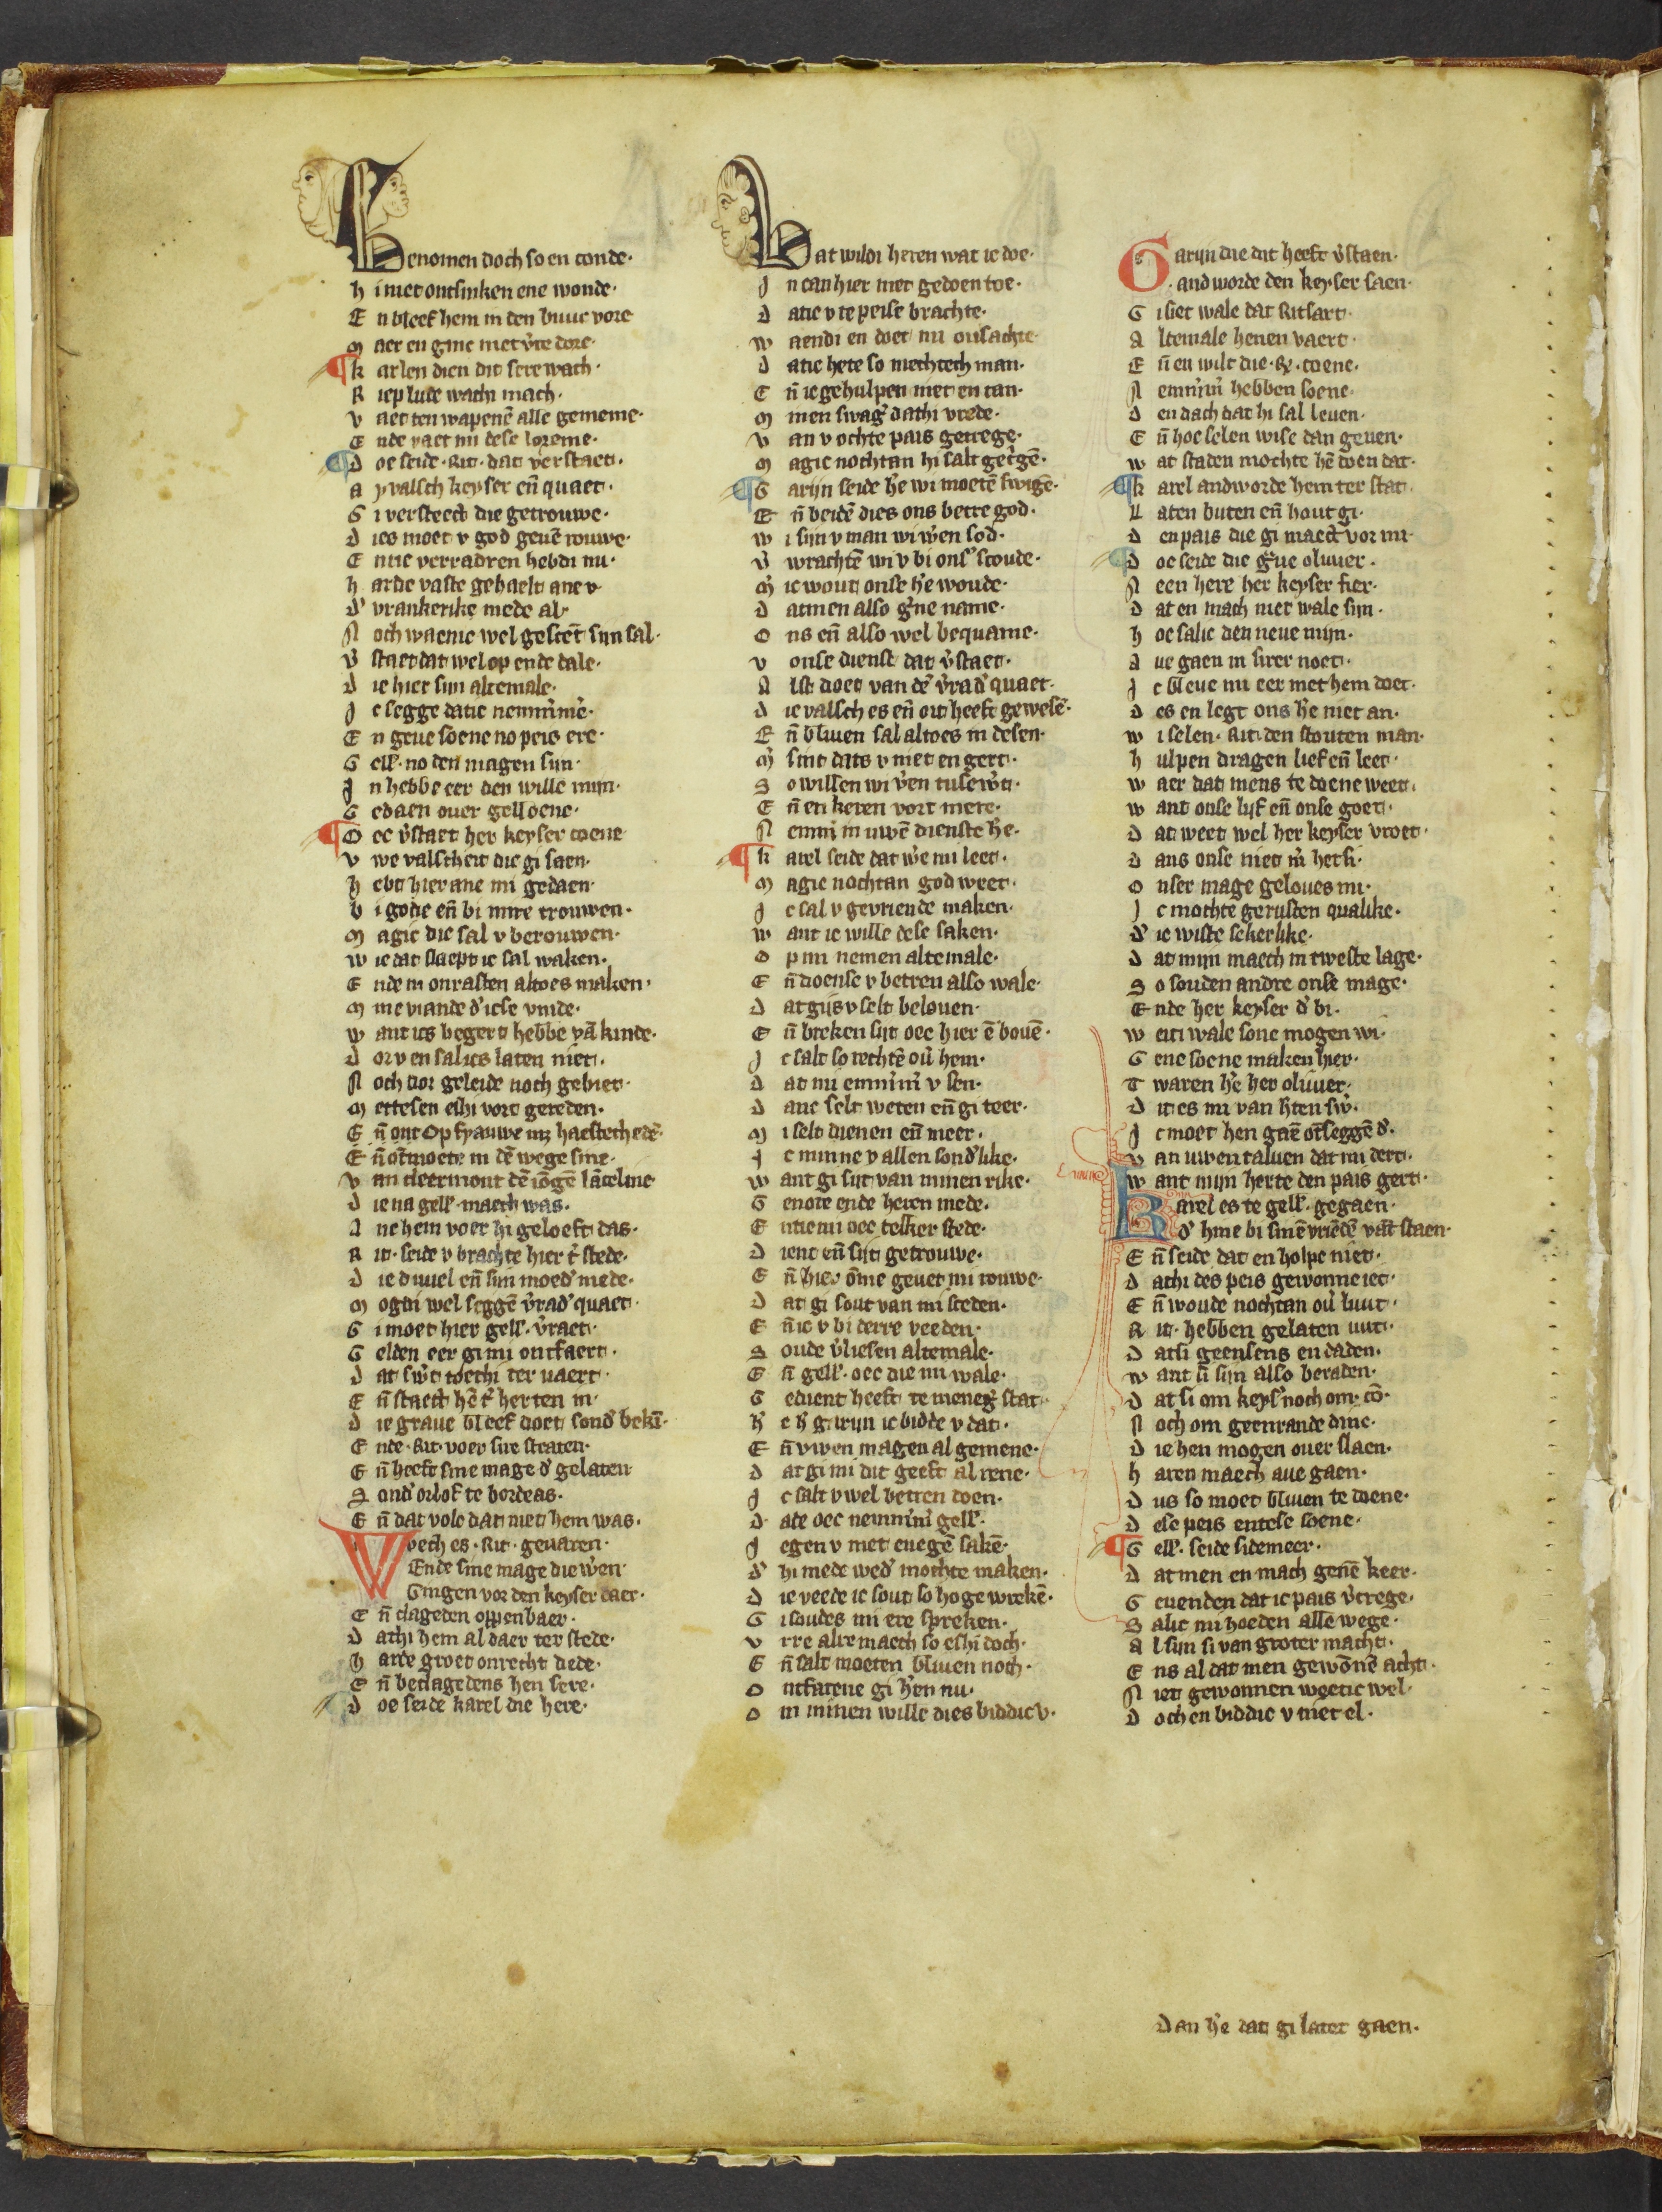 Benomen doch so en conde·
h i niet ontsinken ene wonde·
E n bleef hem in den buuc vore
M aer en ginc niet v̓re dore·
k arlen dien dit sere wach·
R iep lude wach mach·
v aet ten wapenē alle gemeine·
E nde vaet mi dese loreine·
D oe seide ·Rit· dat verstaet·
a y valsch keyser en̄ quaet·
G i versteect die getrouwe·
D ies moet v god geuē rouwe·
E nuc verradren hebdi nu·
h arde vaste gehaelt ane v·
d' vrankerike mede al·
N och waenic wel gestēt sijn sal·
v̓ staet dat wel op ende dale·
D ie hier sijn altemale·
J c segge datic nemm̓mē·
E n geue soene no peis ere·
G ell'· no den magen sijn·
J n hebbe eer den wille mijn·
G edaen ouer gelloene·
O ec v̓staet her keyser coene
v we valscheit die gi saen·
h ebt hier ane mi gedaen·
b i gode en̄ bi mire trouwen·
M agic die sal v berouwen·
w ie dat slaept ic sal waken·
E nde in onrasten altoes maken·
M ine viande d'icse vinde·
w ant ics begert hebbe vā kinde·
D or v en salics laten niet·
N och dor geleide noch gebiet·
M ettesen eshi vort gereden·
E n̄ ont op fyauwe mz haestechedē·
E n̄ ōtmoete in dē wege sine·
v an cleermont dē iōgē lāceline
D ie na gell' maech was·
A ne hem voer hi geloeft das·
R it· seide v brachte hier t̓ stede·
D ie duuel en̄ sijn moed' mede·
M ogdi wel seggē v̓rad' quaet·
G i moet hier gell'· v̓raet·
G elden eer gi mi ontfaert·
D at sw̓t toechi ter vaert·
E n̄ staect hē t̓ herten in·
D ie graue bleef doet sond' bekī·
E nde ·Rit· voer sire straten·
E n̄ heeft sine mage d' gelaten
S ond' orlof te bordeas·
E n̄ dat volc dat met hem was·
Wech es ·Rit· geuaren·
Ende sine mage die w̓en·
Gingen vor den keyser daer·
E n̄ clageden oppenbaer·
D athi hem al daer ter stede·
h arde groet onrecht dede·
E n̄ beclagedens hen sere·
D oe seide karel die here·
Wat wildi heren wat ic doe·
J n can hier niet gedoen toe·
D atic v te peise brachte·
w aendi en doet mi onsachte·
D atic hete so mechtech man·
E n̄ ic gehulpen niet en can·
M inen swag̓ dathi vrede·
v an v ochte pais gecrege·
M agic nochtan hi salt gec̓gē·
G arijn seide h̓e wi moetē swigē·
E n̄ beidē dies ons betre god·
w i sijn v man wi w̓en sod·
v̓ wrachtē wi v bi ons' scoude·
M̓ ic wout onse h̓e woude·
D atmen also g̓ne name·
O ns en̄ also wel bequame·
v onse dienst dat v̓staet·
A lst doet van dē v̓rad' quaet·
D ie valsch es en̄ oit heeft gewesē·
E n̄ bliuen sal altoes in desen·
M̓ sint dats v niet en gert·
S o willen wi v̓en tusew̓t·
E n̄ en keren vort mere·
N emm̓ in uwē dienste h̓e·
k arel seide dat w̓e mi leet·
M agic nochtan god weet·
J c sal v gevriende maken·
w ant ic wille dese saken·
O p mi nemen altemale·
E n̄ doense v betren also wale·
D at gijs v selt belouen·
E n̄ breken sijt oec hier ē bouē·
J c salt so rechtē ou̓ hem·
D at mi emm̓m̓ v sen·
D anc selt weten en̄ gi teer·
M i selt dienen en̄ meer·
J c minne v allen sond'like·
w ant gi sijt van minen rike·
G enote ende heren mede·
E ntie mi oec telker stede·
D ient en̄ sijt getrouwe·
E n̄ hier ōme geuet mi rouwe·
D at gi sout van mi sceden·
E n̄ ic v bi derre veeden·
S oude v̓liesen altemale·
E n̄ gell'· oec die mi wale·
G edient heeft te meneg̓ stat·
h̓ e h̓ garijn ic bidde v dat·
E n̄ vwen magen al gemene·
D at gi mi dit geeft al rene·
J c salt v wel betren doen·
D ate oec nemm̓m̓ gell'·
J egen v met enegē sakē·
d' hi mede wed' mochte maken·
D ie veede ic sout so hoge wrekē·
G i soudes mi ere spreken·
v rre alre maech so eshi doch·
E n̄ salt moeten bliuen noch·
O ntfarene gi h̓en nu·
O m minen wille dies biddic v·
Garijn die dit heeft v̓staen·
Andworde den keyser saen·
G i siet wale dat Ritsart·
A ltemale henen vaert·
E n̄ en wilt die ·Rj· coene·
N emm̓m̓ hebben soene·
D en dach dat hi sal leuen·
E n̄ hoe selen wise dan geuen·
w at staden mochte hē doen dat·
k arel andworde hem ter stat·
L aten buten en̄ hout gi·
D en pais die gi maect vor mi·
D oe seide die g̓ue oliuier·
N een here her keyser fier·
D at en mach niet wale sijn·
h oe salic den neue mijn·
A ue gaen in sirer noet·
J c bleue mi eer met hem doet·
D es en legt ons h̓e niet an·
w i selen ·Rit· den stouten man·
h ulpen dragen lief en̄ leet·
w aer dat mens te doene weet·
w ant onse lijf en̄ onse goet·
D at weet wel her keyser vroet·
D ans onse niet m̓ hets i·
O nser mage geloues mi·
J c mochte gerusten qualike·
d' ic wiste sekerlike·
D at mijn maech in tweste lage·
S o souden andre onse mage·
E nde her keyser d' bi·
w eti wale sone mogen wi·
G ene soene maken hier·
T waren h̓e her oliuier·
D it es mi van h̓ten sw̓·
J c moet hen gaē ōtseggē d'·
v an uwen taluen dat mi dert·
w ant mijn herte den pais gert·
Karel es te gell'· gegaen·
d' hine bi sinē vriēdē vāt staen·
E n̄ seide dat en holpe niet·
D athi des peis gewonne iet·
E n̄ woude nochtan ou̓ luut·
R it· hebben gelaten uut·
D atsi geensens en daden·
w ant si sijn also beraden·
D at si om keys' noch om· cō·
N och om geenrande dinc·
D ie hen mogen ouer slaen·
h aren maech aue gaen·
D us so moet bliuen te doene·
D ese peis entese soene·
G ell'· seide sidemeer·
D atmen en mach genē keer·
G euenden dat ic pais v̓crege·
S alic mi hoeden alle wege·
A l sijn si van groter macht·
E ns al dat men gewōnē acht·
N iet gewonnen weetic wel·
D och en biddic v niet el·
Dan h̓e dat gi latet gaen·